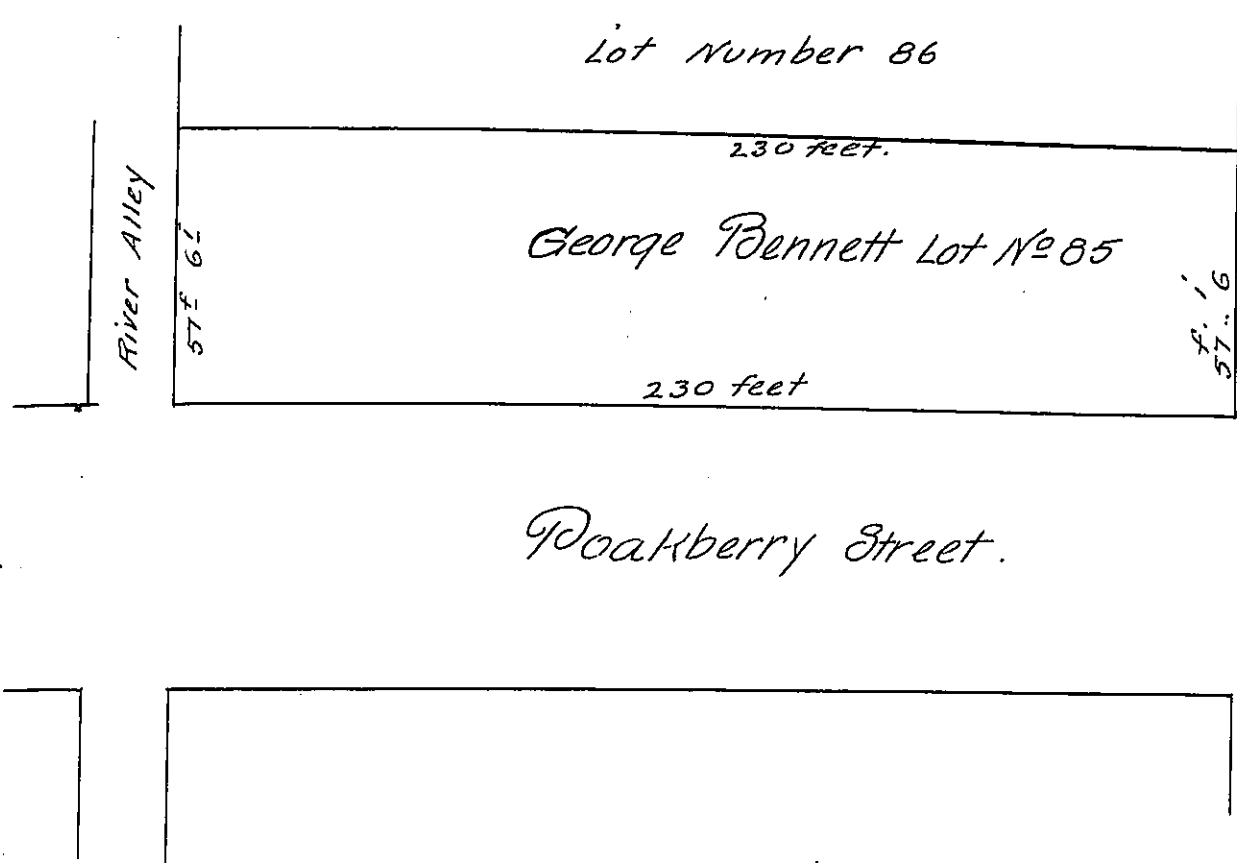 Lot Number 86
230 feet.
River Alley
57 f 6 i
George Bennett Lot Nº 85
57 f. 6 i
230 feet
Poakberry Street.